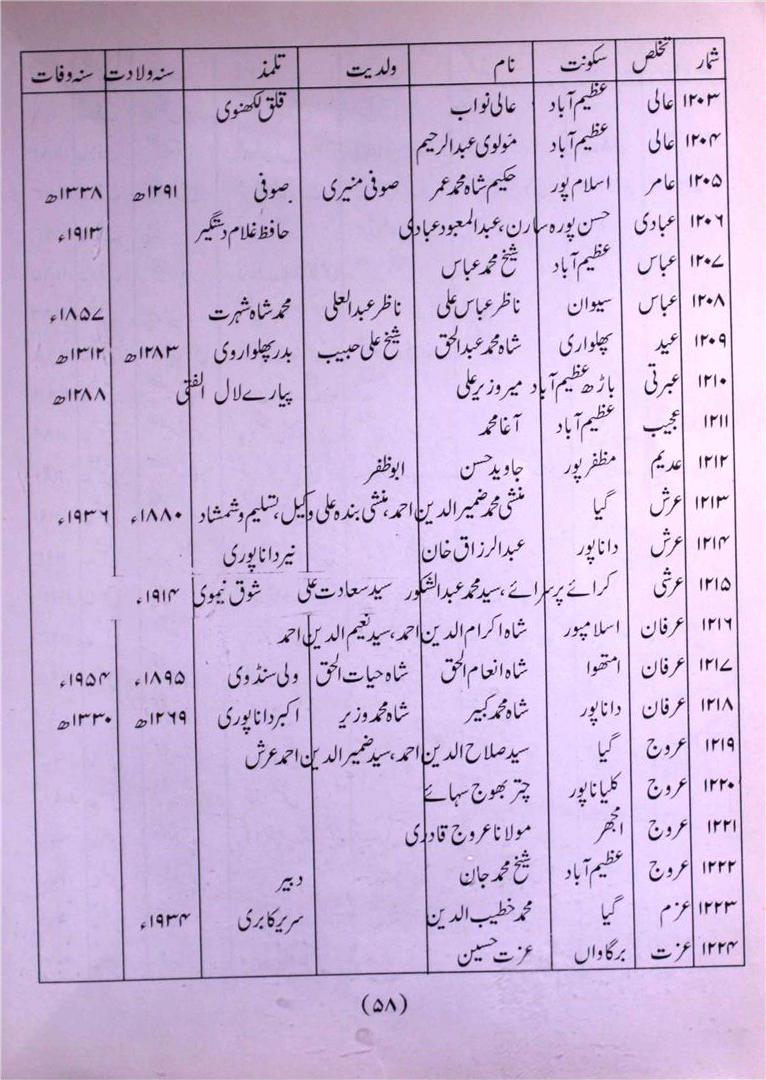 شمار تخلص سکونت نام ولدیت تلمذ سنہ ولادت سنہ وفات
۱۲۰۳ عالی عظیم آباد عالی نواب قلق لکھنوی
۱۲۰۴ عالی عظیم آباد مولوی عبدالرحیم
۱۲۰۵ عامر اسلام پور حکیم شاہ محمد عمر صوفی منیری صوفی ۱۲۹۱ھ ۱۳۳۸ھ
۱۲۰۶ عبادی حسن پورہ سارن، عبدالمعبود عبادی حافظ غلام دستگیر ۱۹۱۳ء
۱۲۰۷ عباس عظیم آباد شیخ محمد عباس
۱۲۰۸ عباس سیوان ناظر عباس علی ناظر عبدالعلی محمد شاہ شہرت ۱۸۵۷ء
۱۲۰۹ عید پھلواری شاہ محمد عبدالحق شیخ علی حبیب بدر پھلواروی ۱۲۸۳ھ ۱۳۱۲ھ
۱۲۱۰ عبرتی باڑھ عظیم آباد میر وزیر علی پیارے لال الفتی ۱۲۸۸ھ
۱۲۱۱ عجیب عظیم آباد آغا محمد
۱۲۱۲ عدیم مظفر پور جاوید حسن ابوظفر
۱۲۱۳ عرش گیا منشی محمد ضمیر الدین احمد، منشی بندہ علی وکیل، تسلیم و شمشاد ۱۸۸۰ء ۱۹۳۶ء
۱۲۱۴ عرش دانا پور عبدالرزاق خان نیر دانا پوری
۱۲۱۵ عرشی کرائے پر سرائے، سید محمد عبدالشکور سید سعادت علی شوق نیموی ۱۹۱۴ء
۱۲۱۶ عرفان اسلامپور شاہ اکرام الدین احمد، سید نعیم الدین احمد
۱۲۱۷ عرفان امتھوا شاہ انعام الحق شاہ حیات الحق ولی سنڈوی ۱۸۹۵ء ۱۹۵۴ء
۱۲۱۸ عرفان دانا پور شاہ محمد کبیر شاہ محمد وزیر اکبر دانا پوری ۱۲۶۹ھ ۱۳۳۰ھ
۱۲۱۹ عروج گیا سید صلاح الدین احمد، سید ضمیر الدین احمد عرش
۱۲۲۰ عروج کلیانا پور چتر بھوج سہائے
۱۲۲۱ عروج امجھر مولانا عروج قادری
۱۲۲۲ عروج عظیم آباد شیخ محمد جان دبیر
۱۲۲۳ عزم گیا محمد خطیب الدین سریر کابری ۱۹۳۴ء
۱۲۲۴ عزت برگاواں عزت حسین
(۵۸)